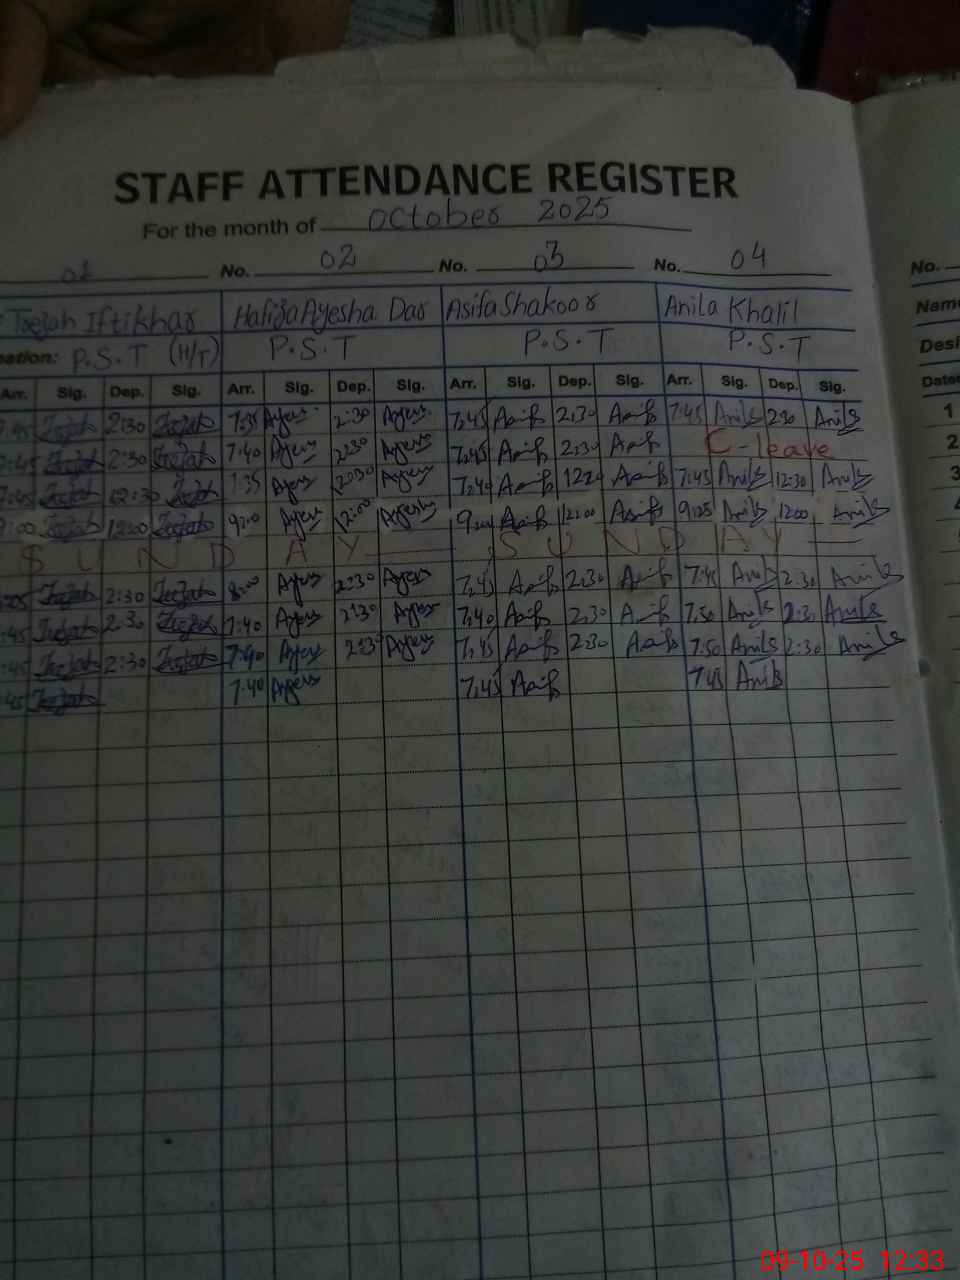 STAFF ATTENDANCE REGISTER
For the month of October 2025
01 No. 02 No. 03 No. 04 No.
Iftikhar Hafiza Ayesha Dar Asifa Shakoor Anila Khalil Nam
nation: P.S.T (H/T) P.S.T P.S.T P.S.T Desi
Arr. Sig. Dep. Sig. Arr. Sig. Dep. Sig. Arr. Sig. Dep. Sig. Arr. Sig. Dep. Sig. Date
:45 2:30 7:35 Ayesha 2:30 Ayesha 7:45 Asifa 2:30 Asifa 7:45 Anila 2:30 Anila 1
:45 2:30 7:40 Ayesha 2:30 Ayesha 7:45 Asifa 2:30 Asifa C-leave 2
7:45 12:30 7:35 Ayesha 12:30 Ayesha 7:40 Asifa Asifa 7:45 Anila 12:30 Anila 3
9:00 12:00 9:00 Ayesha 12:00 Ayesha Asifa 12:00 Asifa 9:05 Anila 12:00 Anila
SUNDAY SUNDAY
:05 2:30 8:00 Ayesha 2:30 Ayesha 7:45 Asifa 2:30 Asifa 7:45 Anila 2:30 Anila
:45 2:30 7:40 Ayesha 2:30 Ayesha 7:40 Asifa 2:30 Asifa 7:50 Anila 2:30 Anila
:45 2:30 7:40 Ayesha 2:30 Ayesha 7:45 Asifa 2:30 Asifa 7:50 Anila 2:30 Anila
:45 7:40 Ayesha 7:45 Asifa 7:45 Anila
09-10-25 12:33